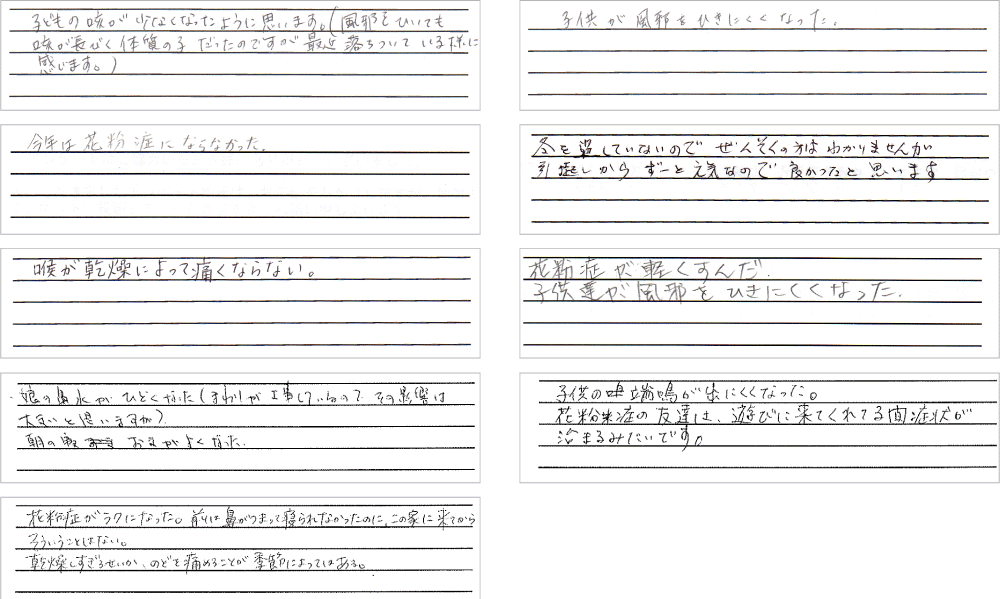 子どもの咳が少なくなったように思います。(風邪をひいても
咳が長びく体質の子だったのですが最近落ちついている様に
感じます。)
子供が風邪をひきにくくなった。
今年は花粉症にならなかった。
冬を越していないので ぜんそくの方はわかりませんが
引越しから ずーと元気なので良かったと思います
喉が乾燥によって痛くならない。
花粉症が軽くすんだ.
子供達が風邪をひきにくくなった.
娘の鼻水がひどくなった(まわりが工事しているので、その影響は
大きいと思いますが)
朝の おきがよくなった.
子供の喘鳴が出にくくなった。
花粉症の友達は、遊びに来てくれてる間症状が
治まるみたいです。
花粉症がラクになった。前は鼻がつまって寝られなかったのに、この家に来てから
そういうことはない。
乾燥しすぎるせいか、のどを痛めることが季節によってはある。